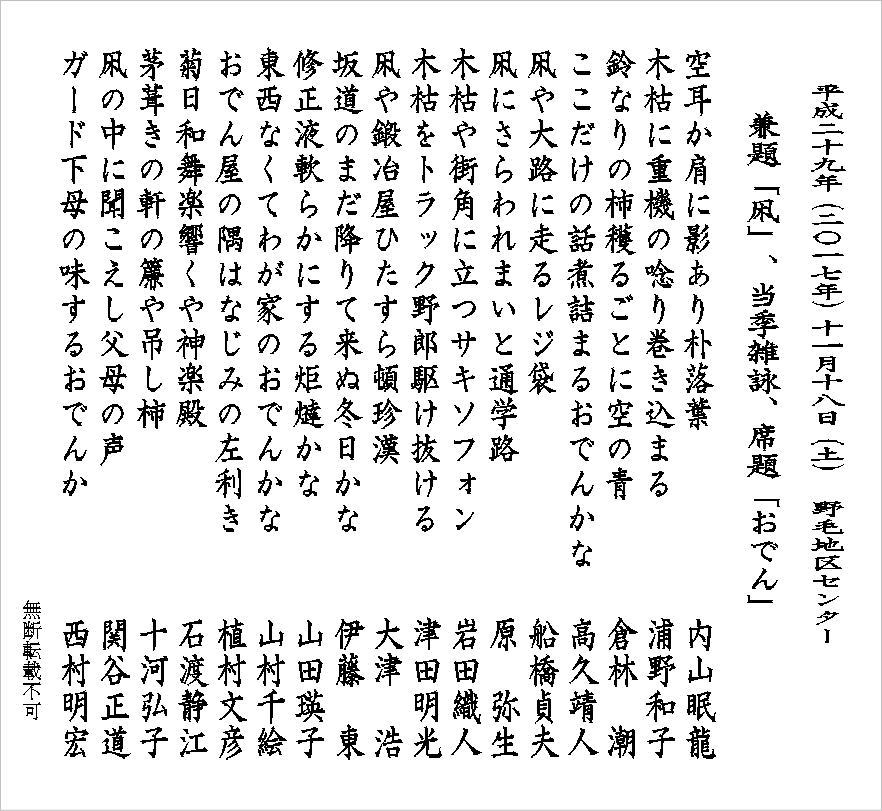 平成二十九年（二〇一七年）十一月十八日（土）　野毛地区センター
兼題「凩」、当季雑詠、席題「おでん」
空耳か肩に影あり朴落葉　内山眠龍
木枯に重機の唸り巻き込まる　浦野和子
鈴なりの柿穫るごとに空の青　倉林　潮
ここだけの話煮詰まるおでんかな　高久靖人
凩や大路に走るレジ袋　船橋貞夫
凩にさらわれまいと通学路　原　弥生
木枯や街角に立つサキソフォン　岩田織人
木枯をトラック野郎駆け抜ける　津田明光
凩や鍛冶屋ひたすら頓珍漢　大津　浩
坂道のまだ降りて来ぬ冬日かな　伊藤　東
修正液軟らかにする炬燵かな　山田瑛子
東西なくてわが家のおでんかな　山村千絵
おでん屋の隅はなじみの左利き　植村文彦
菊日和舞楽響くや神楽殿　石渡静江
茅葺きの軒の簾や吊し柿　十河弘子
凩の中に聞こえし父母の声　関谷正道
ガード下母の味するおでんか　西村明宏
無断転載不可